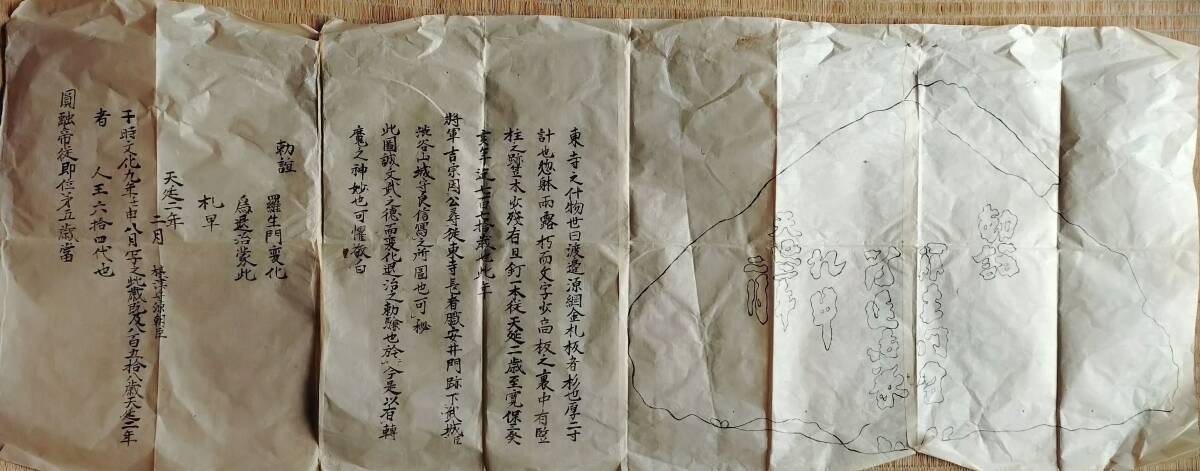 勅諚
羅生門変
為退治蒙
札早
天延二年
二月
東寺之什物世曰渡邉源綱金札板者杉也厚二寸
計也惣躰雨露朽而文字少高板之裏中有竪
柱之跡笠木少残有且釘一本従天延二歳至寛保三癸
亥年迄七百七拾歳也此年
将軍吉宗因公尋従東寺長者職安井門跡下武城臣
渋谷山城守良信写之所図也可秘
此図誠文武之徳而変化退治之勅験也於今是以有轉
魔之神妙也可懼敬白
勅諚
羅生門変化
為退治蒙此
札早
天延二年
二月
源朝臣
于時文化九年壬申八月写之此歳既及八百五拾八歳天延二年
者 人王六拾四代也
圓融帝従即位第五歳當